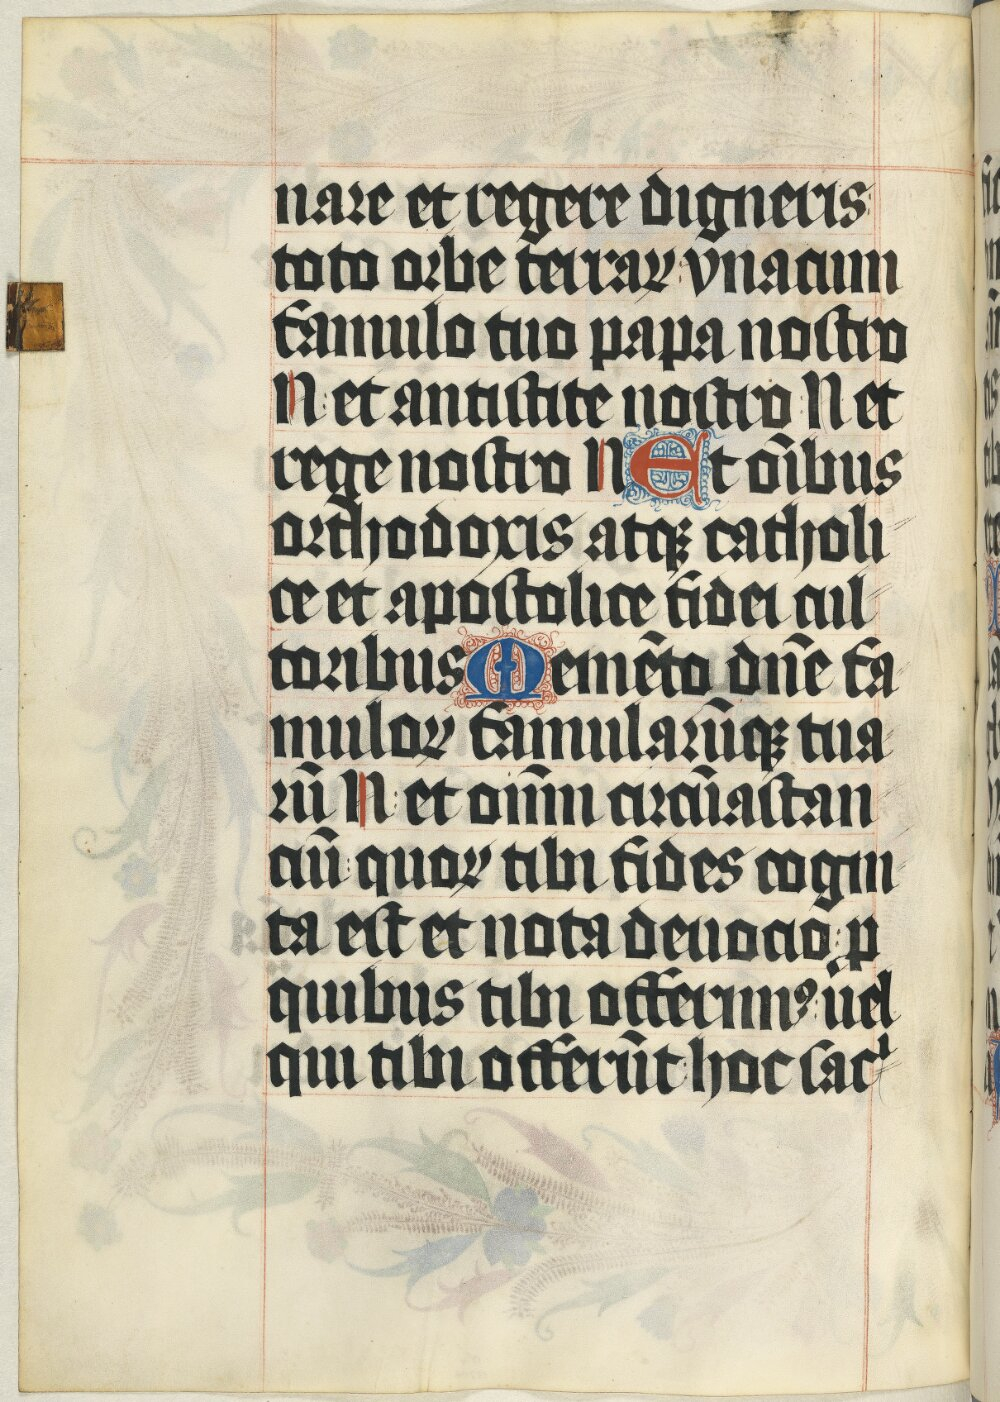 nare et regere digneris
toto orbe terraꝝ vnacum
famulo tuo papa nostro
N et antistite nostro N et
rege nostro N Et oībus
orthodoxis atqꝫ catholi
ce et apostolice fidei cul
toribus Memēto dn̄e fa
muloꝝ famularūqꝫ tua
rū N et omn̄i circūastan
ciū quoꝝ tibi fides cogni
ta est et nota deuocio p
quibus tibi offerimꝰ uel
qui tibi offerūt hoc sac